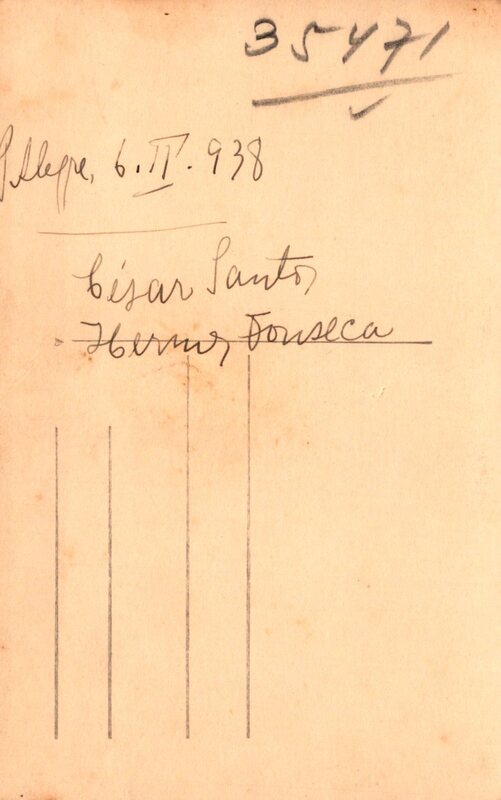 35471
P Alegre, 6.II.938
César Santos
Hermes Fonseca